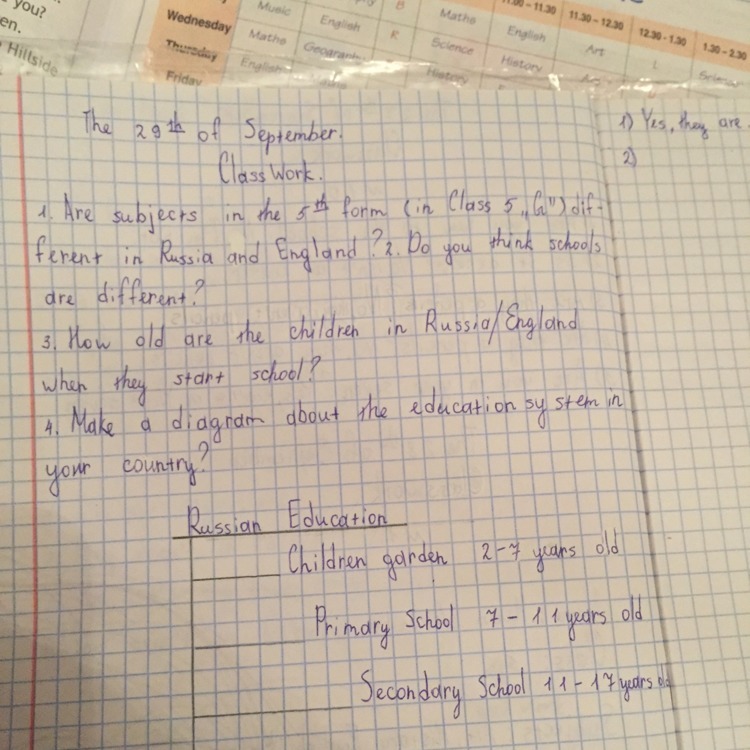 you?
en.
Hillside
Wednesday
Thursday
Friday
Music
English
B
Maths
English
11.00 – 11.30
11.30 – 12.30
12.30 – 1.30
1.30 – 2.30
Maths
Geography
R
Science
History
Art
L
Science
English
History
The 29th of September.
ClassWork.
1. Are subjects in the 5th form (in Class 5 „G") dif-
ferent in Russia and England? 2. Do you think schools
are different?
3. How old are the children in Russia/England
when they start school?
4. Make a diagram about the education system in
your country?
Russian Education
Children garden 2-7 years old
Primary School 7-11 years old
Secondary School 11-17 years old
1) Yes, they are.
2)